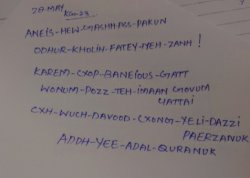 20 MAY
ANEIS-HEW-GASHH-ASS-PAKUN
ODHUR-KHOLIN-FATEY-YEH-ZANH!
KAREM-CXOP-BANEIOUS-GATT
WONUM-DOZZ-TEH-IMAAN CHOVUM
HATTAI
CXH-WUCH-DAVOOD-CXONG-YELI-DAZZI
PAERZANUK
ADDH-YEE-ADAL-QURANUK